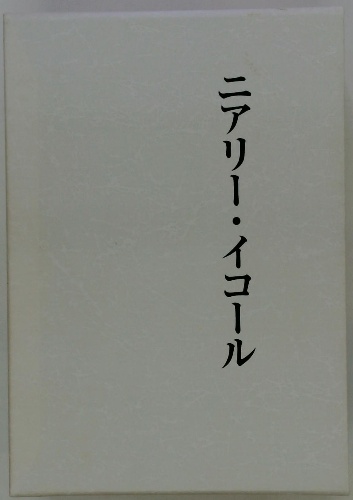 ニアリー・イコール